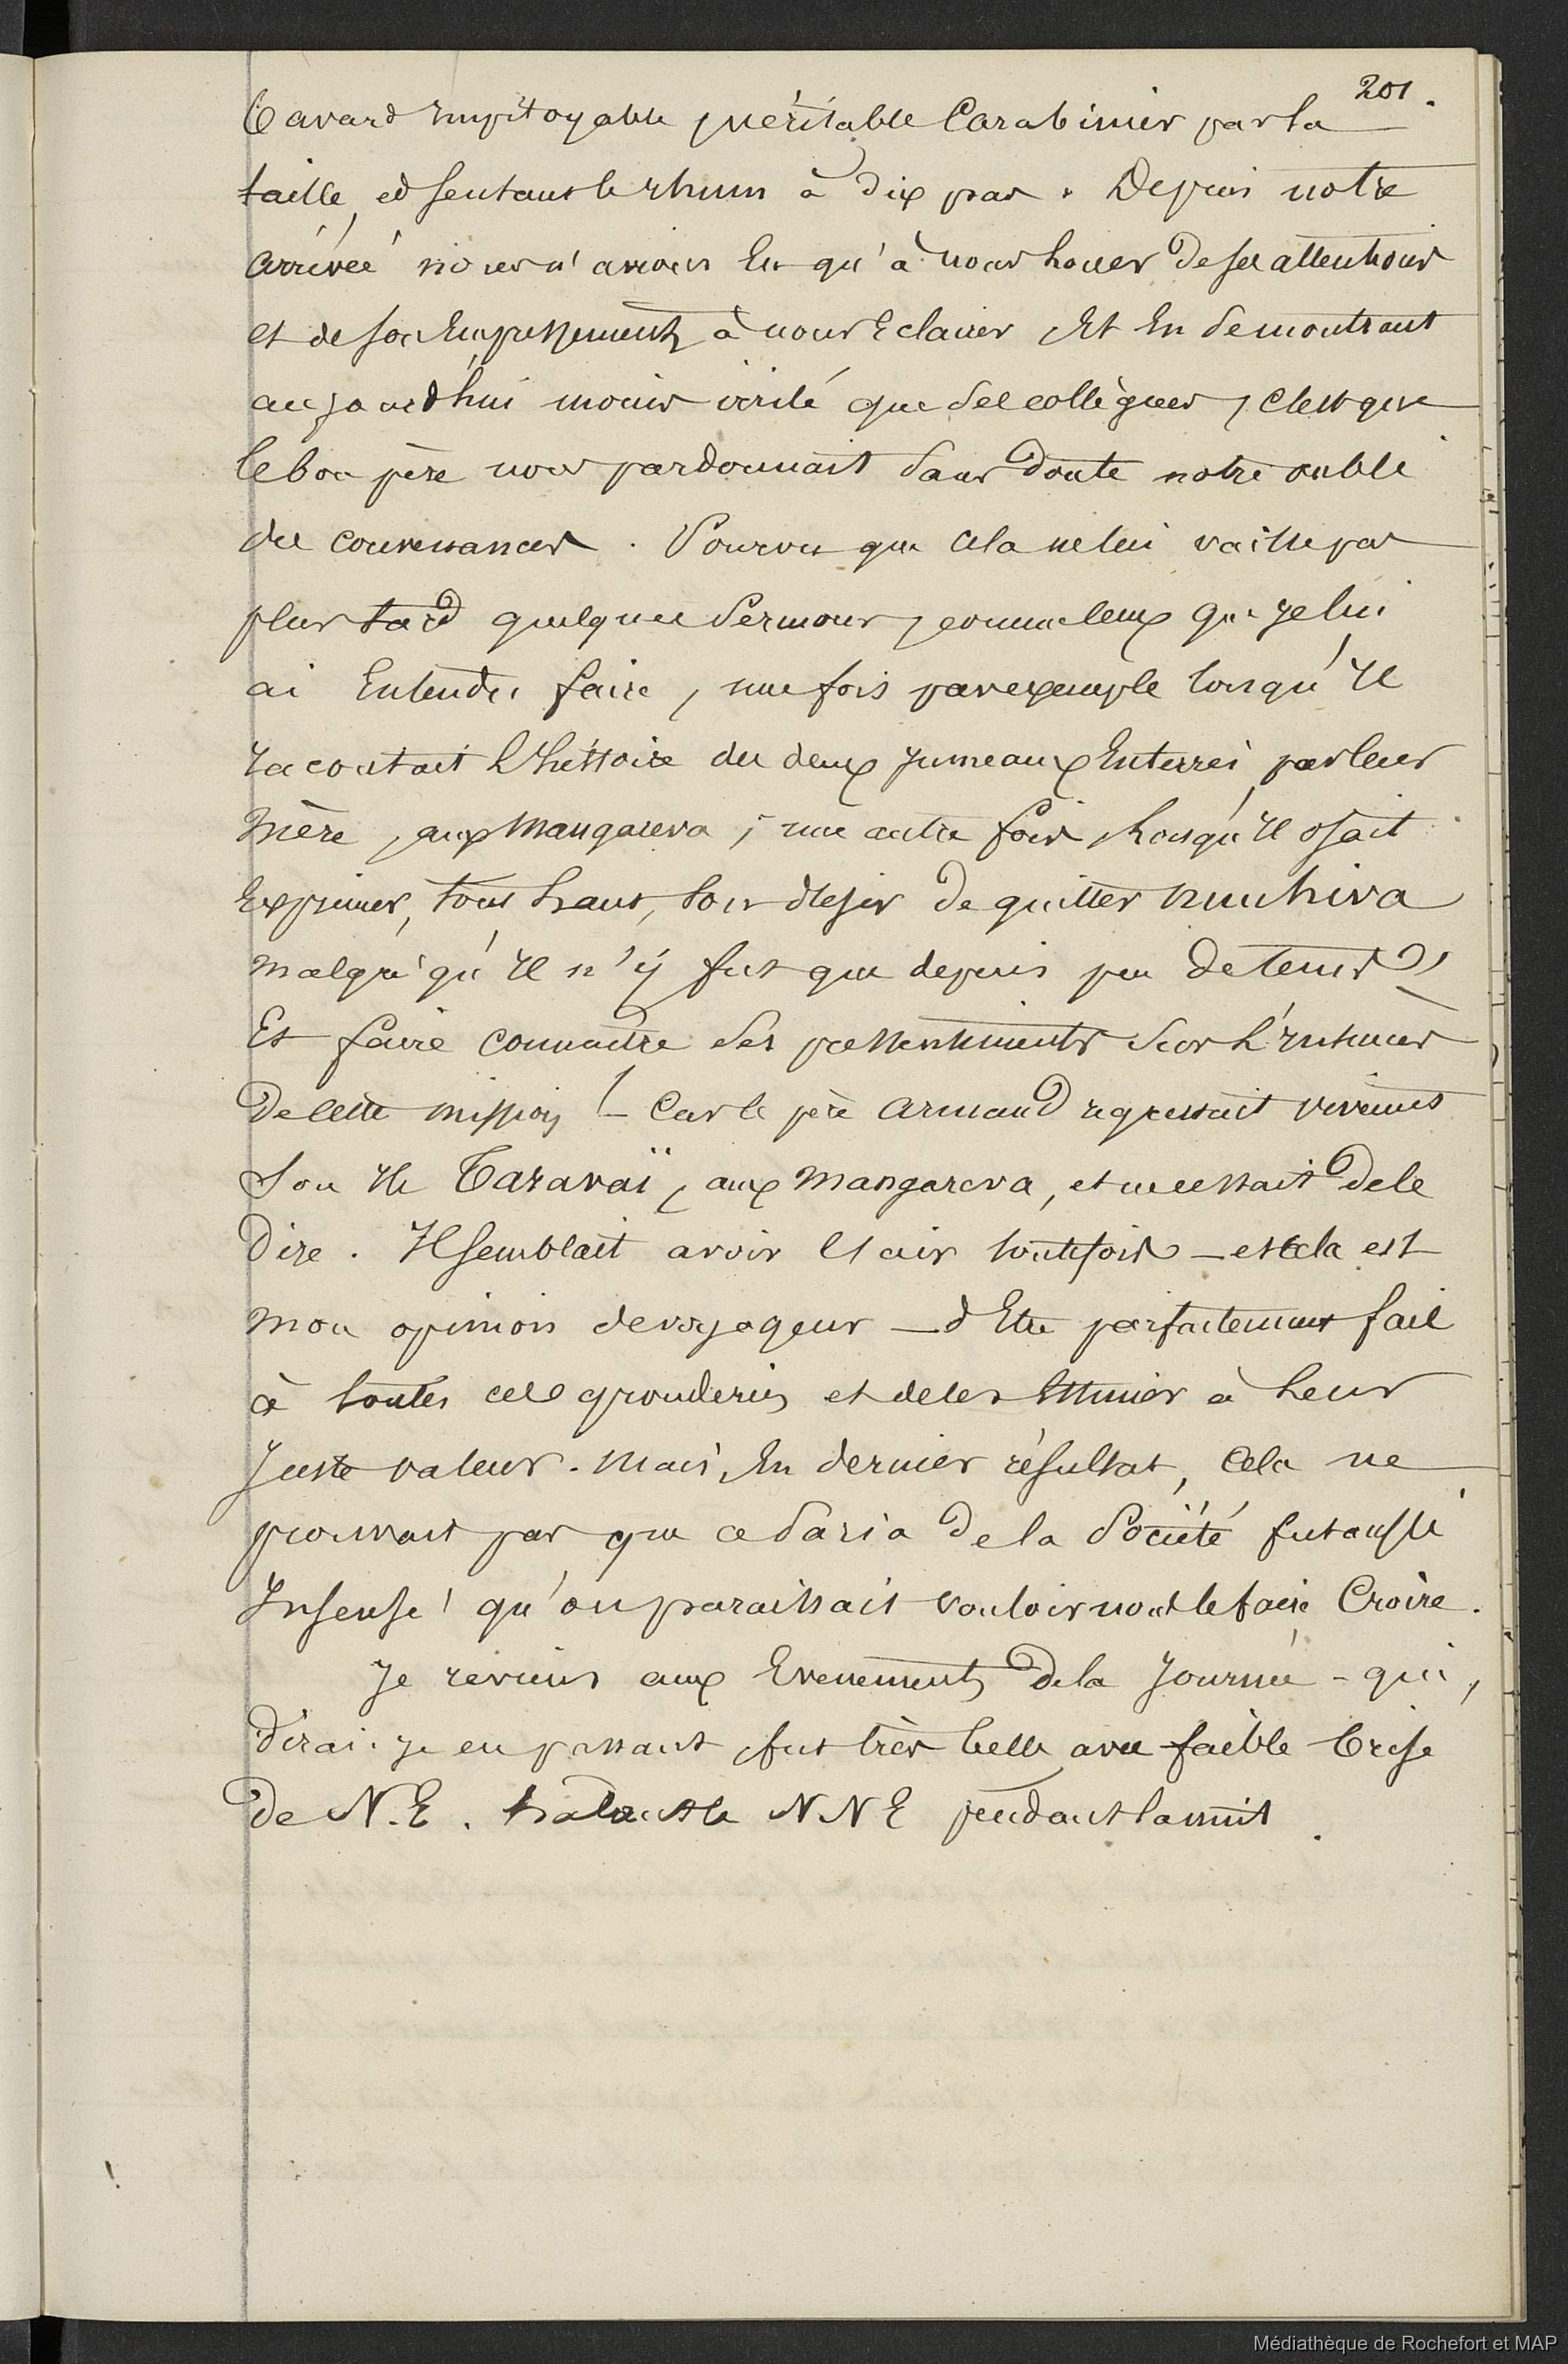 201.
bavard impitoyable, véritable Carabinier par la
taille, et sentant le rhum à dix pas. Depuis notre
arrivée nous n'avions Eu qu'à nous louer de ses attentions
et de son Empressement à nous Eclairer Et En se montrant
aujourd'hui moins irrité que ses collègues, c'est que
le bon père nous pardonnait sans doute notre oubli
des convenances. Pourvu que cela ne lui vaille pas
plus tard quelques sermons, comme ceux que je lui
ai Entendu faire, une fois par exemple lorsqu'Il
racontait L'histoire des deux Jumeaux Enterrés par leur
mère, aux Mangareva; une autre fois, Lorsqu'Il osait
Exprimer, tout haut, son désir de quitter nuuhiva
malgré qu'Il n'y fut que depuis peu de tems,
Et faire connaître ses pressentiments sur L'insuccès
de cette mission! - Car le père Armand regrettait vivement
son Ile Taravaï, aux Mangareva, et ne cessait de le
dire. Il semblait avoir l'air toutefois - et cela est
mon opinion de voyageur - d'Etre parfaitement fait
à toutes ces gronderies et de les Estimer à Leur
Juste valeur. Mais, En dernier résultat, cela ne
prouvait pas que ce Paria de la Société fut aussi
Insensé qu'on paraissait vouloir nous le faire Croire.
Je reviens aux Evenements de la Journée - qui,
dirai-je en passant, fut très belle avec faible brise
de N.E. halant le NNE pendant la nuit.
Médiathèque de Rochefort et MAP